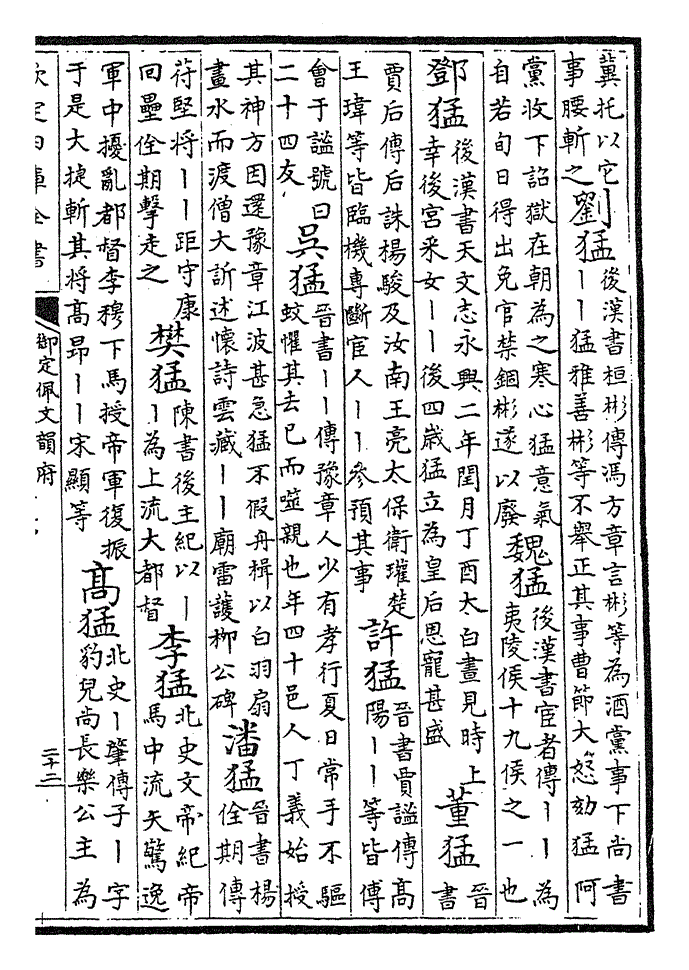 冀托以它
事腰斬之劉猛後漢書桓彬傳馮方章言彬等為酒黨事下尚書
丨丨猛雅善彬等不舉正其事曹節大怒劾猛阿
黨收下詔獄在朝為之寒心猛意氣
自若旬日得出免官禁錮彬遂以廢魏猛後漢書宦者傳丨丨為
夷陵侯十九侯之一也
鄧猛後漢書天文志永興二年閏月丁酉太白晝見時上
幸後宮采女丨丨後四歲猛立為皇后恩寵甚盛董猛晉
書
賈后傳后誅楊駿及汝南王亮太保衛瓘楚
王瑋等皆臨機專斷宦人丨丨參預其事許猛晉書賈謐傳高
陽丨丨等皆傅
會于謐號曰
二十四友吳猛晉書丨丨傳豫章人少有孝行夏日常手不驅
蚊懼其去已而噬親也年四十邑人丁義始授
其神方因還豫章江波甚急猛不假舟楫以白羽扇
畫水而渡僧大訢述懷詩雲藏丨丨廟雷護柳公碑潘猛晉書楊
佺期傳
苻堅將丨丨距守康
回壘佺期擊走之樊猛陳書後主紀以丨
丨為上流大都督李猛北史文帝紀帝
馬中流矢驚逸
軍中擾亂都督李穆下馬授帝軍復振
于是大捷斬其将高昂丨丨宋顯等高猛北史丨肇傳子丨字
豹兒尚長樂公主為
欽定四庫全書
御定佩文韻府
二十二